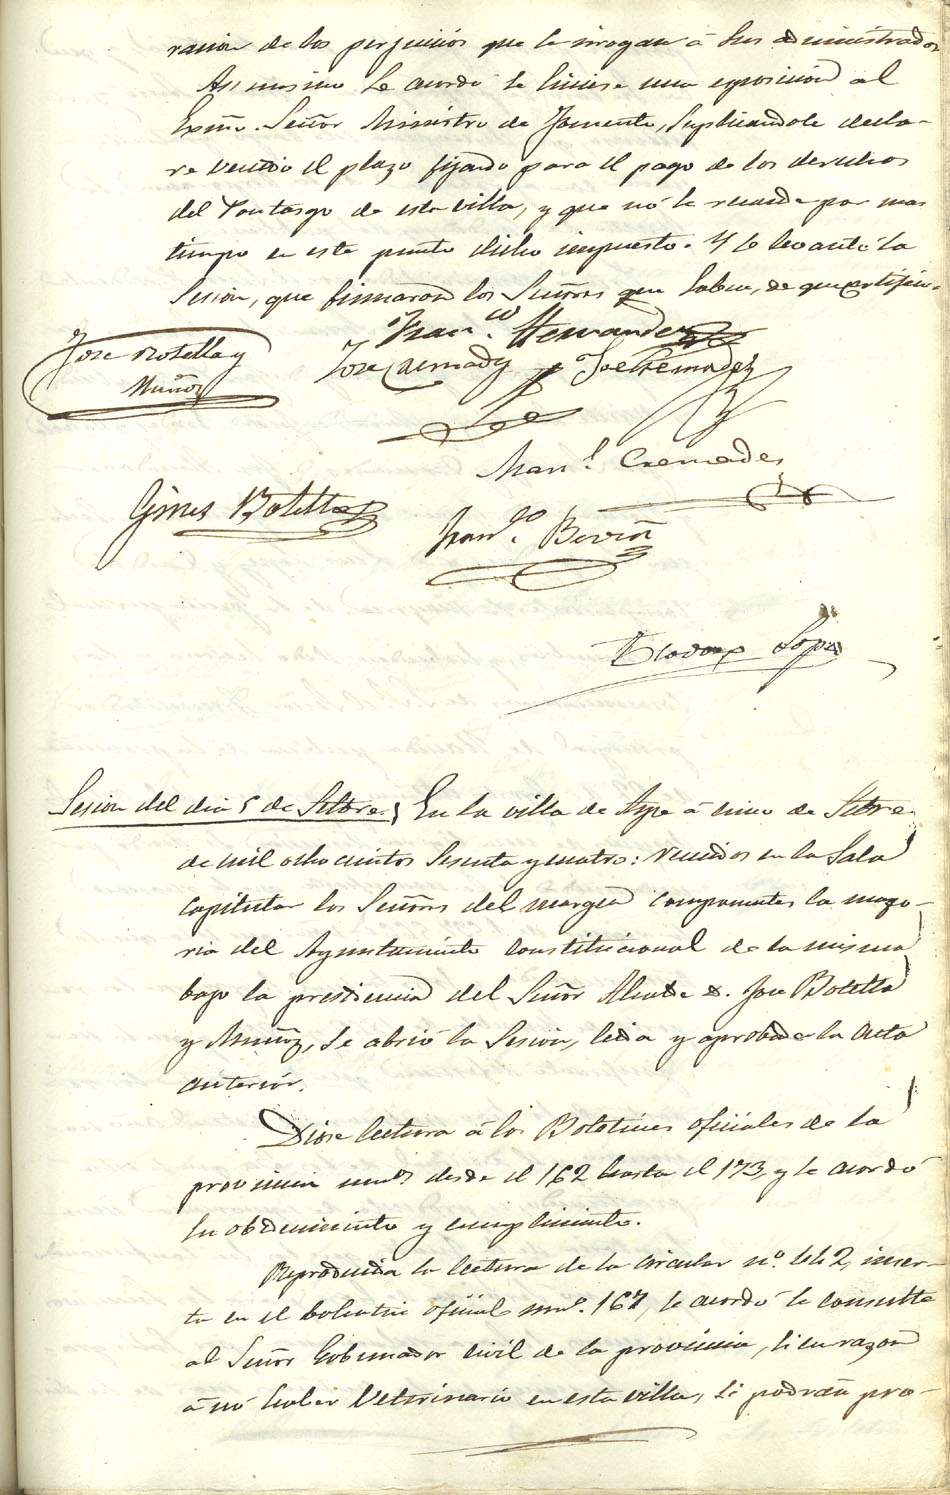 racion de los perjuicios que le irrogan á sus administrados
Asi mismo se acordó se hiciese una exposicion al
Exmo. Señor Ministro de Fomento, suplicandole decla-
re vencido el plazo fijado para el pago de los derechos
del Pontazgo de esta villa, y que nó se recaude por mas
tiempo en este punto dicho impuesto. Y se levantó la
Sesion, que firmaron los Señores que saben, de que certifico.
Franco. Hernandez
Jose Botella y
Muñoz
Jose Cremades
Jose Cremades
Manl. Cremades
Gines Botella
Franco. Beviá
Teodoro Lopez
Sesion del dia 5 de Setbre. En la villa de Aspe á cinco de Setbre
de mil ocho cientos sesenta y cuatro: reunidos en la Sala
capitular los Señores del margen componentes la mayo-
ria del Ayuntamiento constitucional de la misma
bajo la presidencia del Señor Alcalde D. Jose Botella
y Muñoz, se abrió la Sesion, leida y aprobada la acta
anterior.
Diose lectura á los Boletines oficiales de la
provincia numos. desde el 162 hasta el 173, y se acordó
su obedecimiento y cumplimiento.
Reproducida la lectura de la circular no. 442, inser-
ta en el boletin oficial numo. 167, se acordó se consulte
al Señor Gobernador civil de la provincia, si en razon
á nó haber Veterinario en esta villa, si podrán pro-